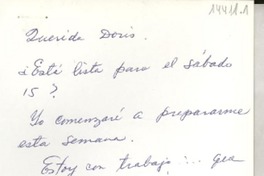 14418.1
Querida Doris.
¿Está lista para el sábado
15?
Yo comenzaré a prepararme
esta semana.
Estoy con trabajo ...